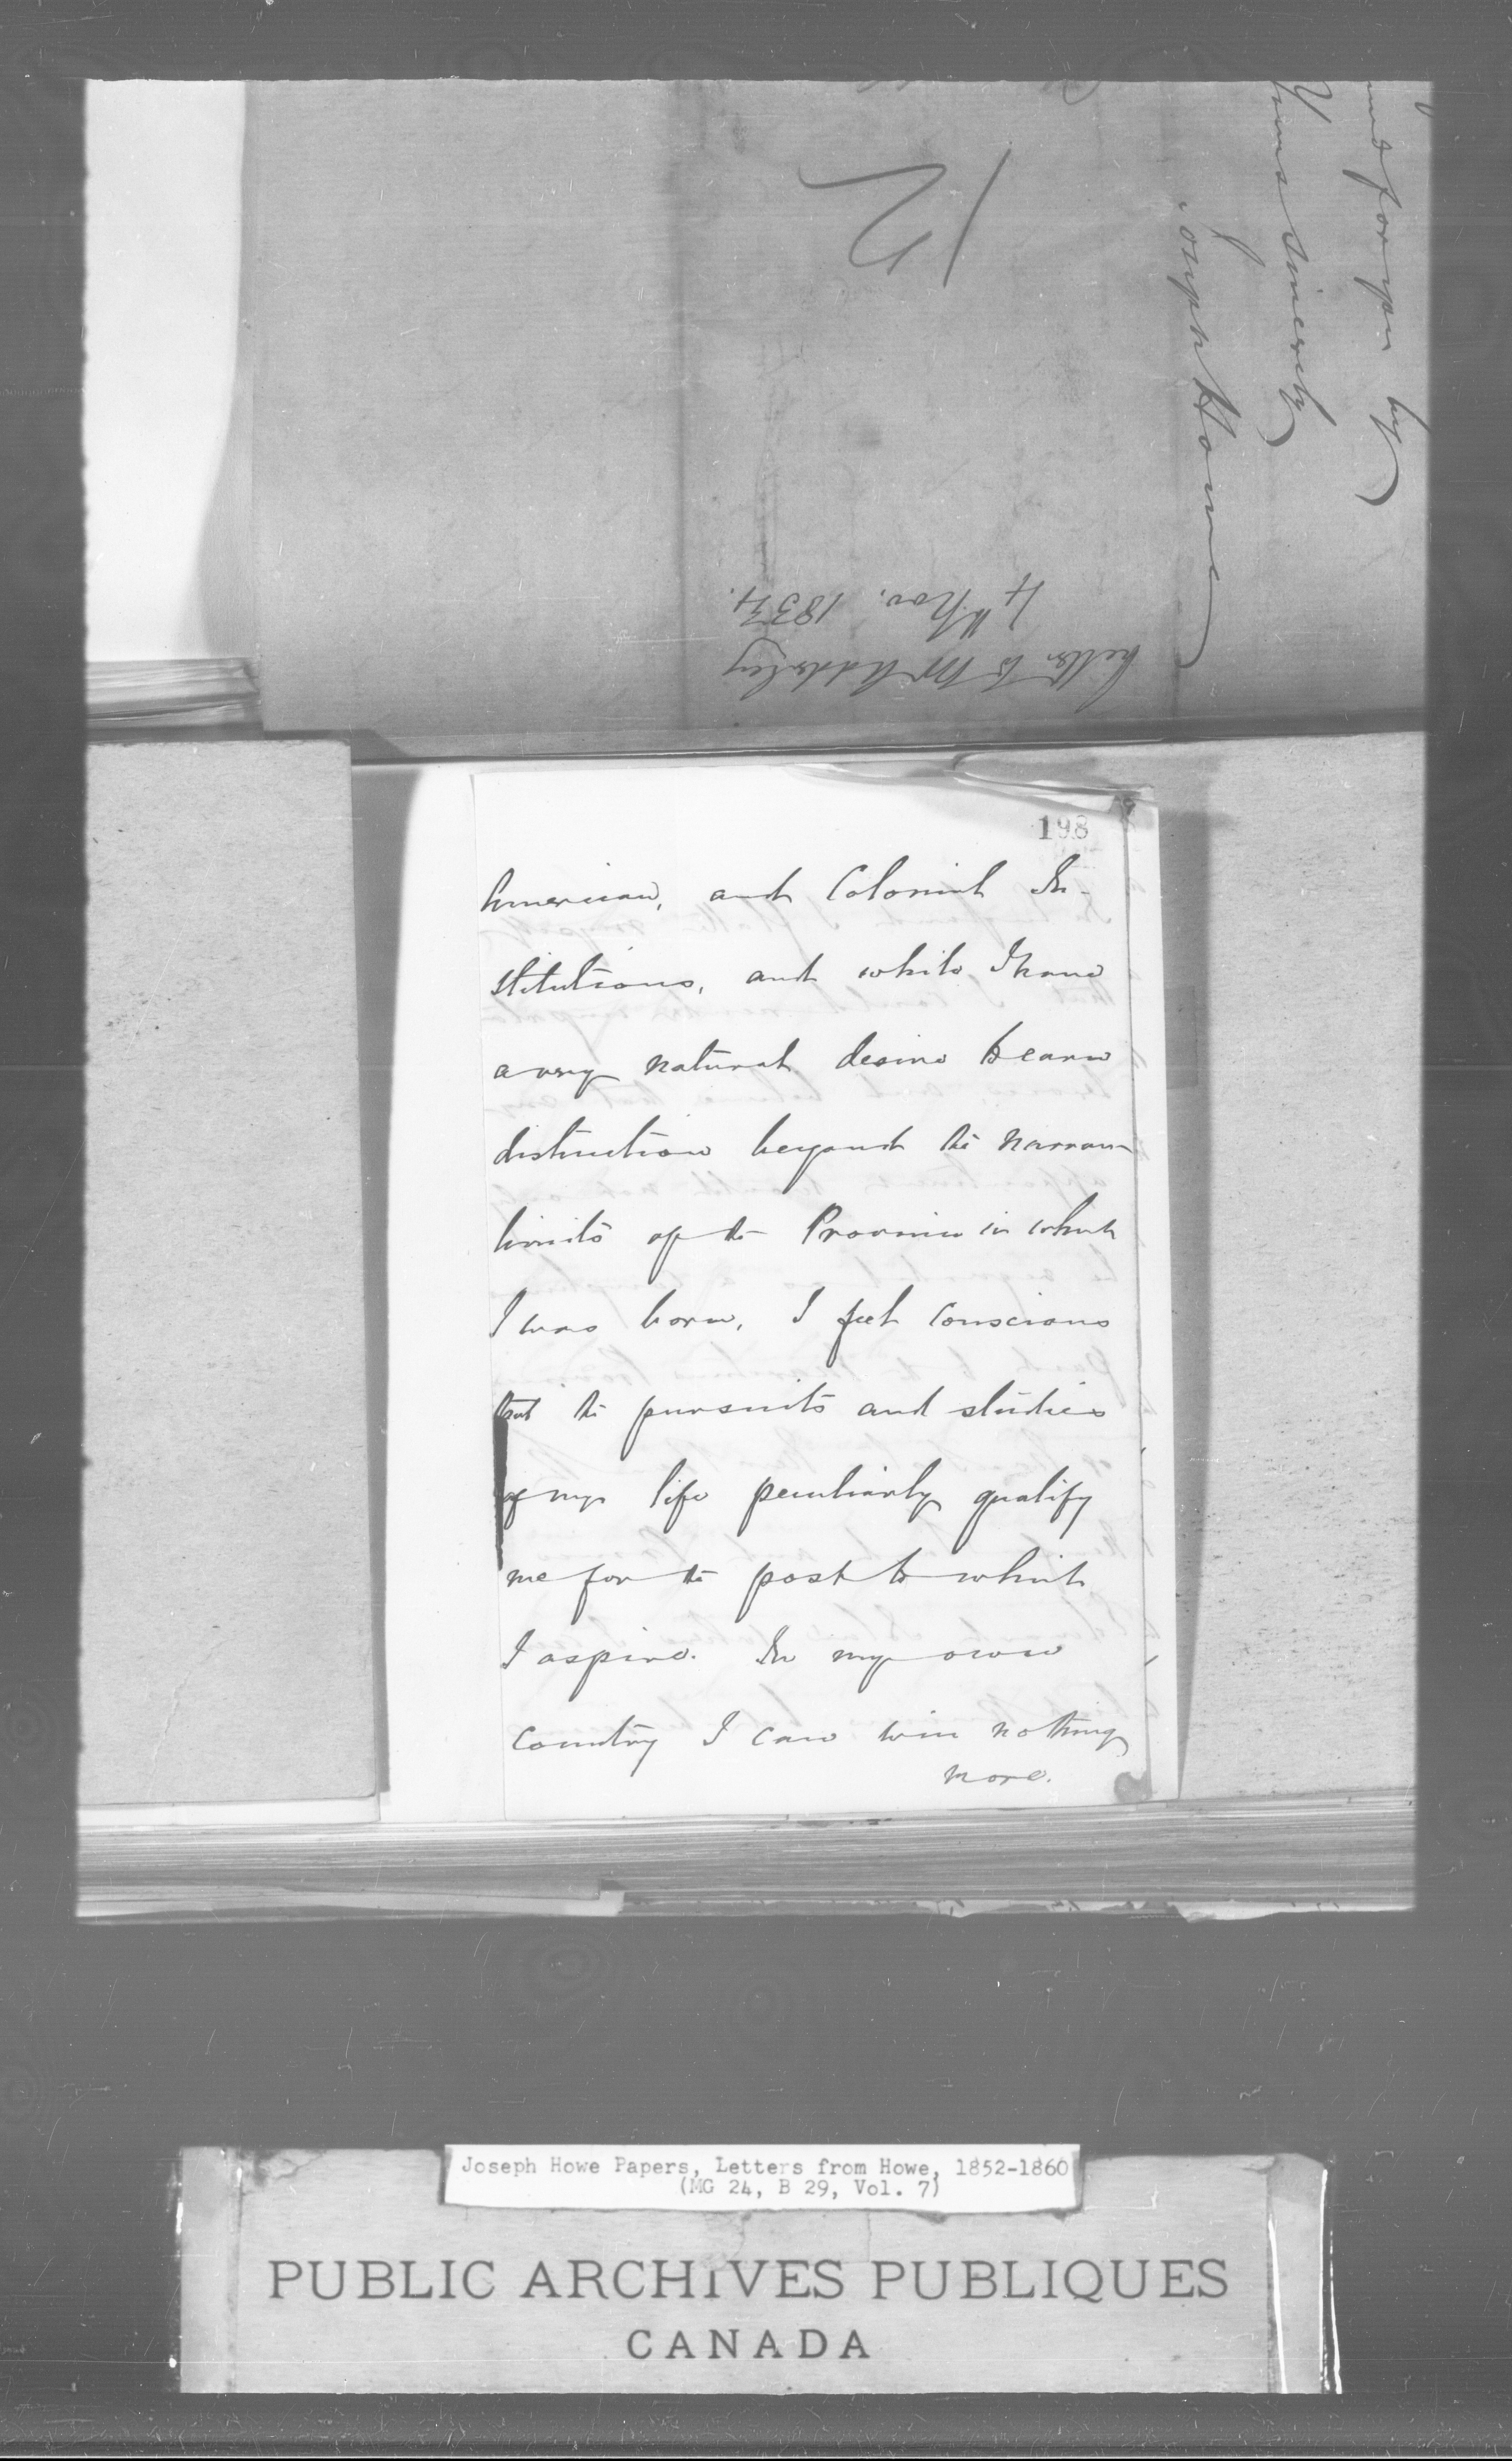 and for you by
Yours Sincerely
Joseph Howe
12
Letter to Mr Adderley
4th Nov. 1834.
198
American, and Colonial In-
stitutions, and while I have
a very natural desire to earn
distinction beyond the narrow
limits of the Province in which
I was born, I feel conscious
that the pursuits and studies
of my life peculiarly qualify
me for the post to which
I aspire. In my own
Country I can win nothing
more.
Joseph Howe Papers, Letters from Howe, 1852-1860
(MG 24, B 29, Vol. 7)
PUBLIC ARCHIVES PUBLIQUES
CANADA